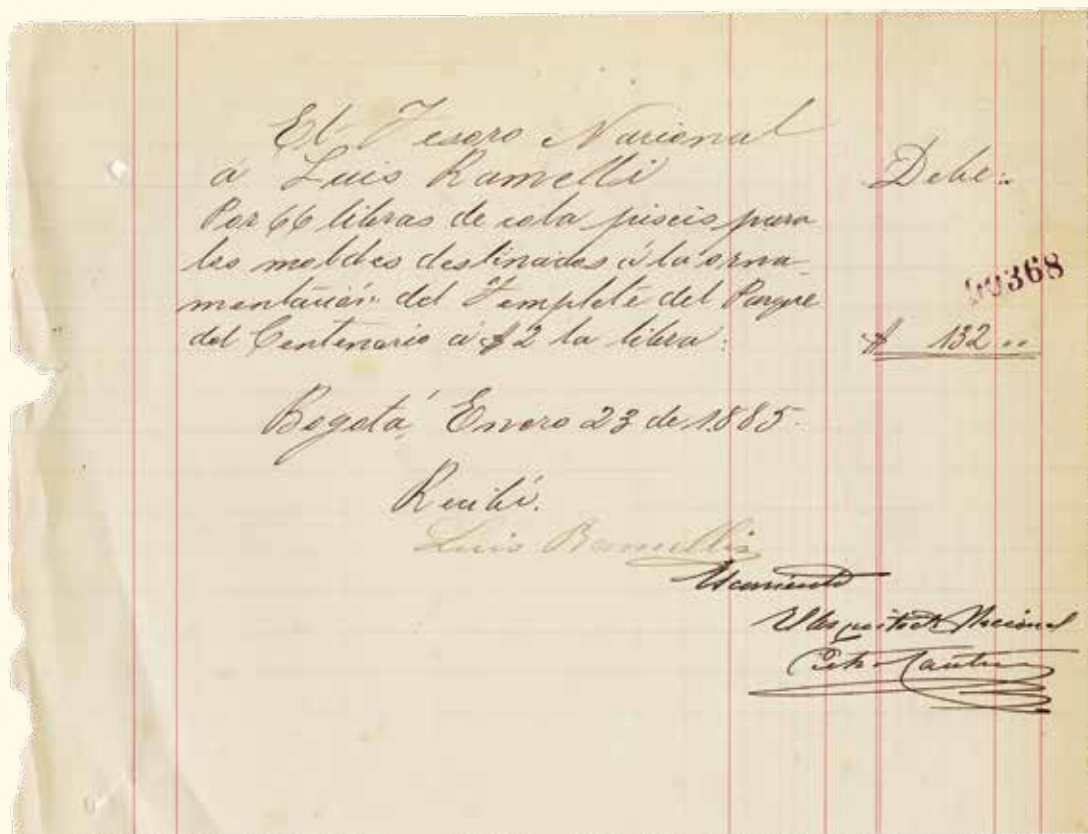 El Tesoro Nacional
á Luis Ramelli Debe:
Por 66 libras de cola piscis para
los moldes destinados á la orna-
mentación del Templete del Parque
00368
del Centenario á $2 la libra: $ 132..
Bogotá, Enero 23 de 1885.
Recibí.
Luis Ramelli
El Arquitecto Nacional
Pietro Cantini